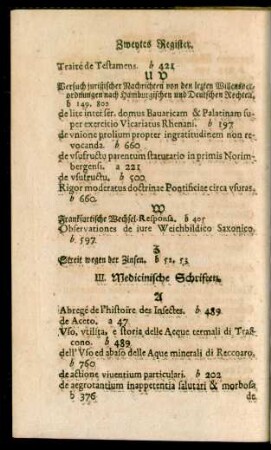 Zweytes Register.
Traité de Testamens. b 421
U V
Versuch juristischer Nachrichten von den letzten Willensver-
ordnungen nach Hamburgischen und Deutschen Rechten.
b 149. 802
de lite inter ser. domus Bauaricam & Palatinam su-
per exercitio Vicariatus Rhenani. b 197
de vnione prolium propter ingratitudinem non re-
vocanda. b 660
de vsufructu parentum statutario in primis Norim-
bergensi. a 221
de vsufructu. b 500
Rigor moderatus doctrinae Pontificiae circa vsuras.
b 660.
W
Franckfurtische Wechsel-Responsa. b 405
Observationes de iure Weichbildico Saxonico.
b 597
Z
Streit wegen der Zinsen. b 52, 53
III. Medicinische Schriften.
A
Abregé de l'histoire des Insectes. b 489
de Aceto. a 47
Vso, vtilita, e storia delle Acque termali di Tras-
cono. b 489
dell'Vso ed abuso delle Aque minerali di Reccoaro.
b 760
de actione viuentium particulari. b 202
de aegrotantium inappetentia salutari & morbosa.
b 376 de